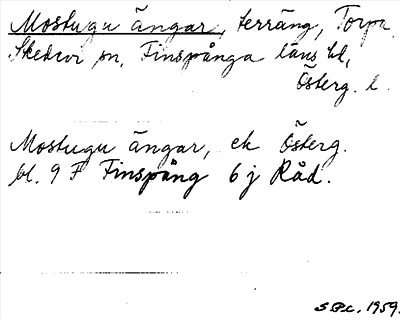 Mostugu ängar, terräng, Torpa
Skedevi sn, Finspånga läns hd,
Österg. l.
Mostugu ängar, ek Österg.
bl. 9 F Finspång 6 j Råd.
1959.